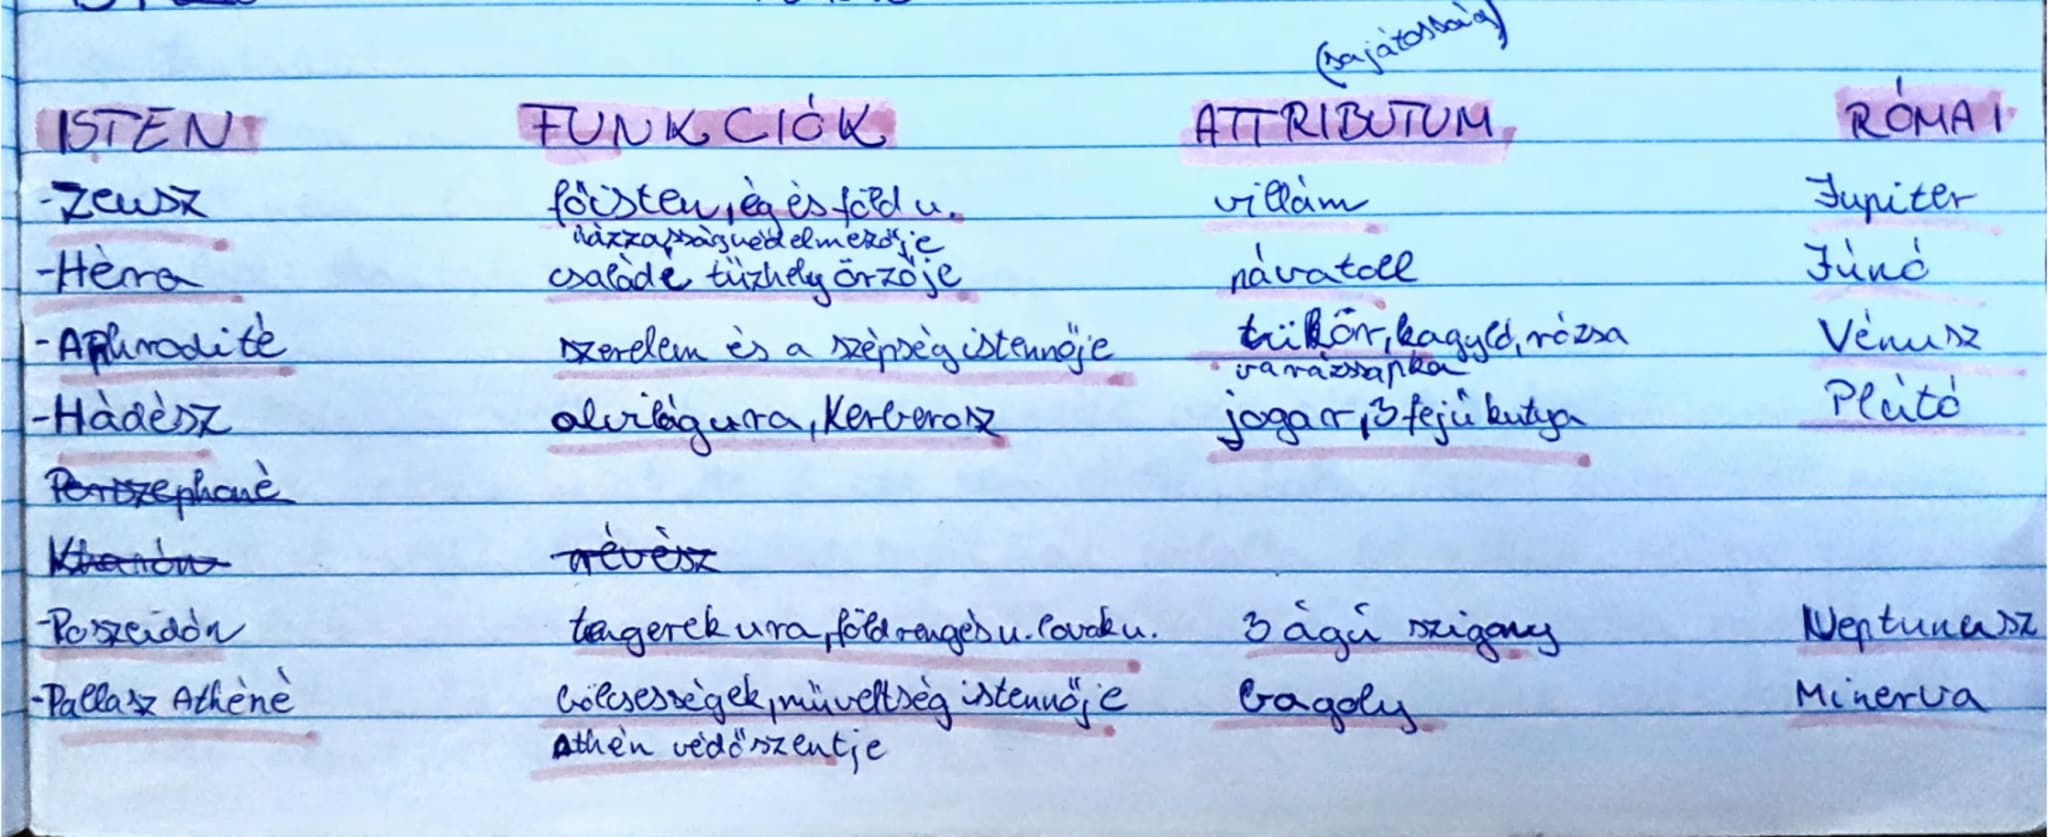 (sajátosság)
ISTEN FUNKCIÓK ATTRIBUTUM RÓMAI
-Zeusz főisten, ég és föld u. villám Jupiter
házzasság védelmezője
-Héra családé tűzhely őrzője pávatoll Júnó
-Aphrodité szerelem és a szépség istennője tükör, kagyló, rózsa Vénusz
varázssapka
-Hádész alvilág ura, Kerberosz jogar, 3 fejű kutya Plútó
Perszephoné
Kharón révész
-Poszeidón tengerek ura, földrengés u. lovak u. 3 ágú szigony Neptunusz
-Pallasz Athéné bölcsességek, műveltség istennője bagoly Minerva
Athén védőszentje